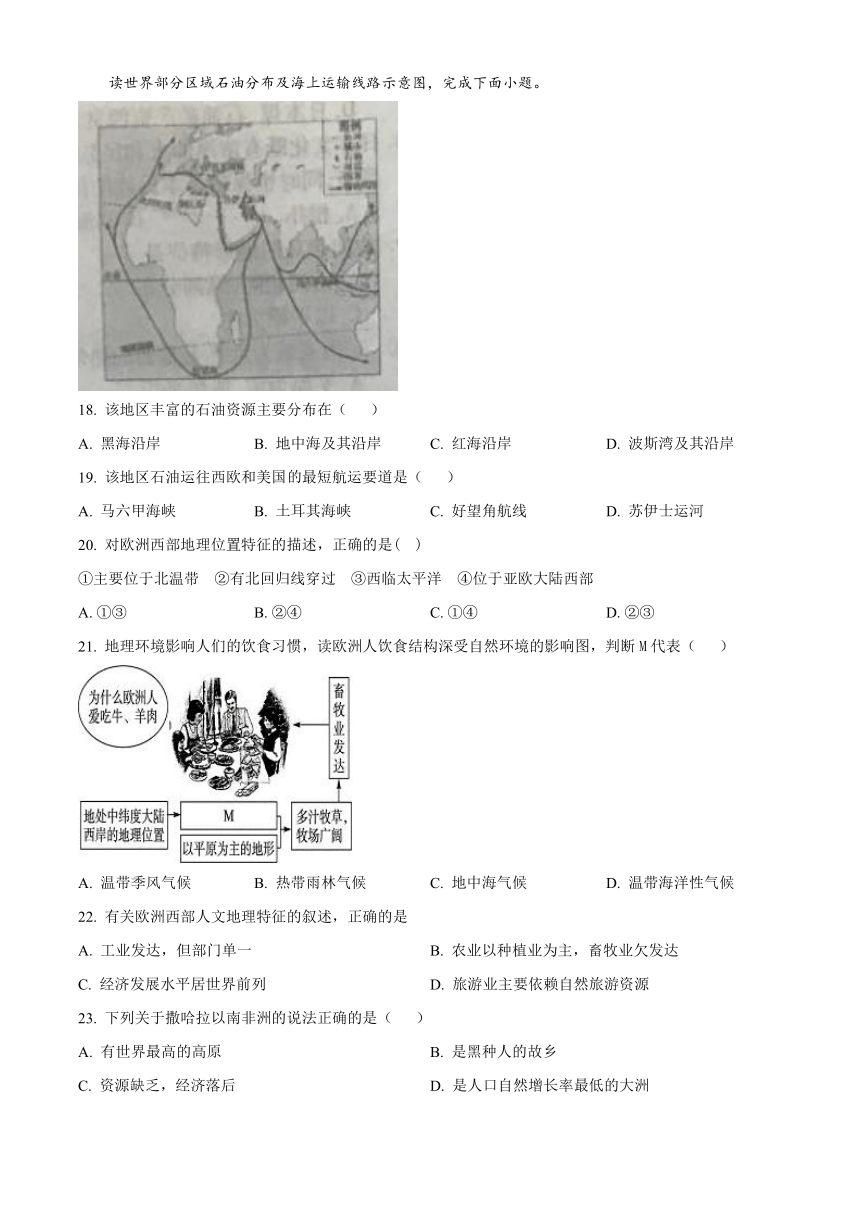 读世界部分区域石油分布及海上运输线路示意图，完成下面小题。
图例
18. 该地区丰富的石油资源主要分布在（ ）
A. 黑海沿岸 B. 地中海及其沿岸 C. 红海沿岸 D. 波斯湾及其沿岸
19. 该地区石油运往西欧和美国的最短航运要道是（ ）
A. 马六甲海峡 B. 土耳其海峡 C. 好望角航线 D. 苏伊士运河
20. 对欧洲西部地理位置特征的描述，正确的是( )
①主要位于北温带 ②有北回归线穿过 ③西临太平洋 ④位于亚欧大陆西部
A. ①③ B. ②④ C. ①④ D. ②③
21. 地理环境影响人们的饮食习惯，读欧洲人饮食结构深受自然环境的影响图，判断 M 代表（ ）
为什么欧洲人
爱吃牛、羊肉
畜牧业发达
地处中纬度大陆
西岸的地理位置
M
以平原为主的地形
多汁牧草，
牧场广阔
A. 温带季风气候 B. 热带雨林气候 C. 地中海气候 D. 温带海洋性气候
22. 有关欧洲西部人文地理特征的叙述，正确的是
A. 工业发达，但部门单一 B. 农业以种植业为主，畜牧业欠发达
C. 经济发展水平居世界前列 D. 旅游业主要依赖自然旅游资源
23. 下列关于撒哈拉以南非洲的说法正确的是（ ）
A. 有世界最高的高原 B. 是黑种人的故乡
C. 资源缺乏，经济落后 D. 是人口自然增长率最低的大洲